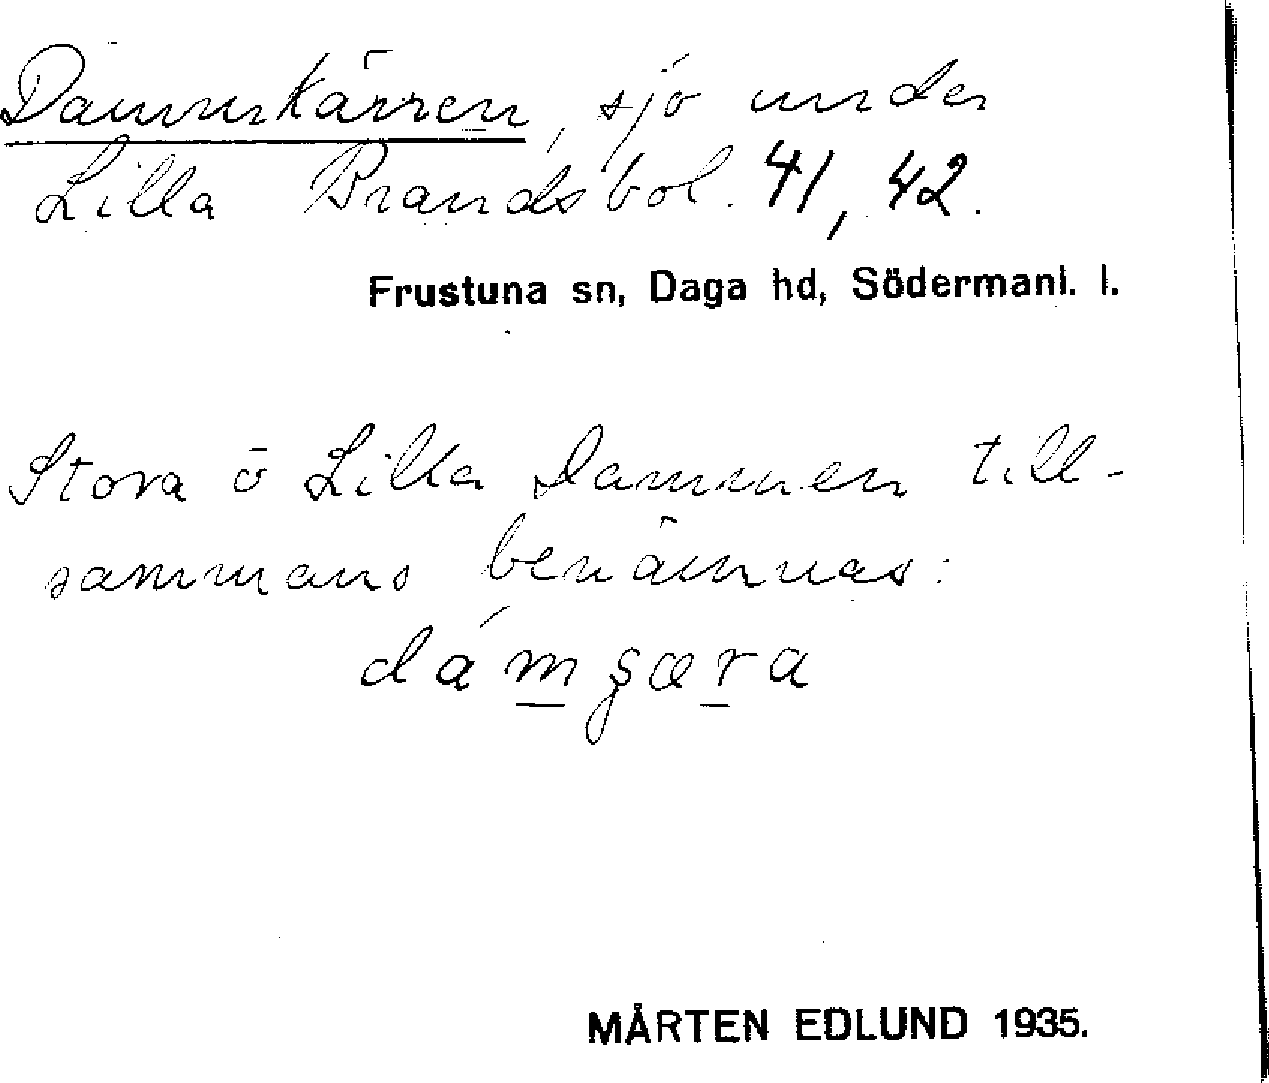 Dammkärren, sjö under
Lilla Brandsbol. 41, 42.
Frustuna sn, Daga hd, Södermanl. l.
Stora o Lilla Dammen till-
sammans benämnas:
MÅRTEN EDLUND 1935.